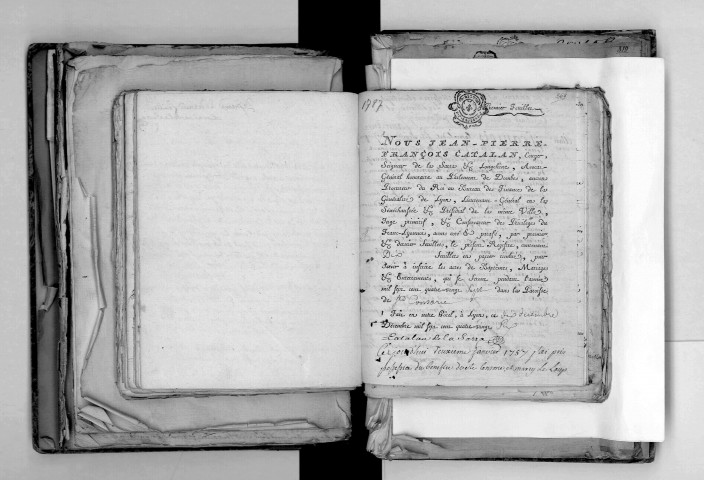 1787
premier feuillet
NOUS JEAN-PIERRE-
FRANÇOIS CATALAN, Ecuyer,
Seigneur de la Sarra & Longchêne, Avocat-
Général honoraire au Parlement de Dombes, ancien
Procureur du Roi au Bureau des Finances de la
Généralité de Lyon, Lieutenant-Général en la
Sénéchaussée & Présidial de la même Ville,
Juge primitif, & Conservateur des Privileges du
Franc-Lyonnois, avons coté & paraphé, par premier
& dernier feuillets, le présent Registre, contenant
feuillets en papier timbré, pour
servir à insérer les actes de Baptêmes, Mariages
& Enterremens, qui se feront pendant l'année
mil sept cent quatre-vingt sept dans la Paroisse
de Ste Consorce
Fait en notre Hôtel, à Lyon, ce decembre
Décembre mil sept cent quatre-vingt six
Catalan de la Sarra
Cejourdhui deuxieme janvier 1787 j'ai pris
possession du benefice de Ste Consorce et mercy le Loup